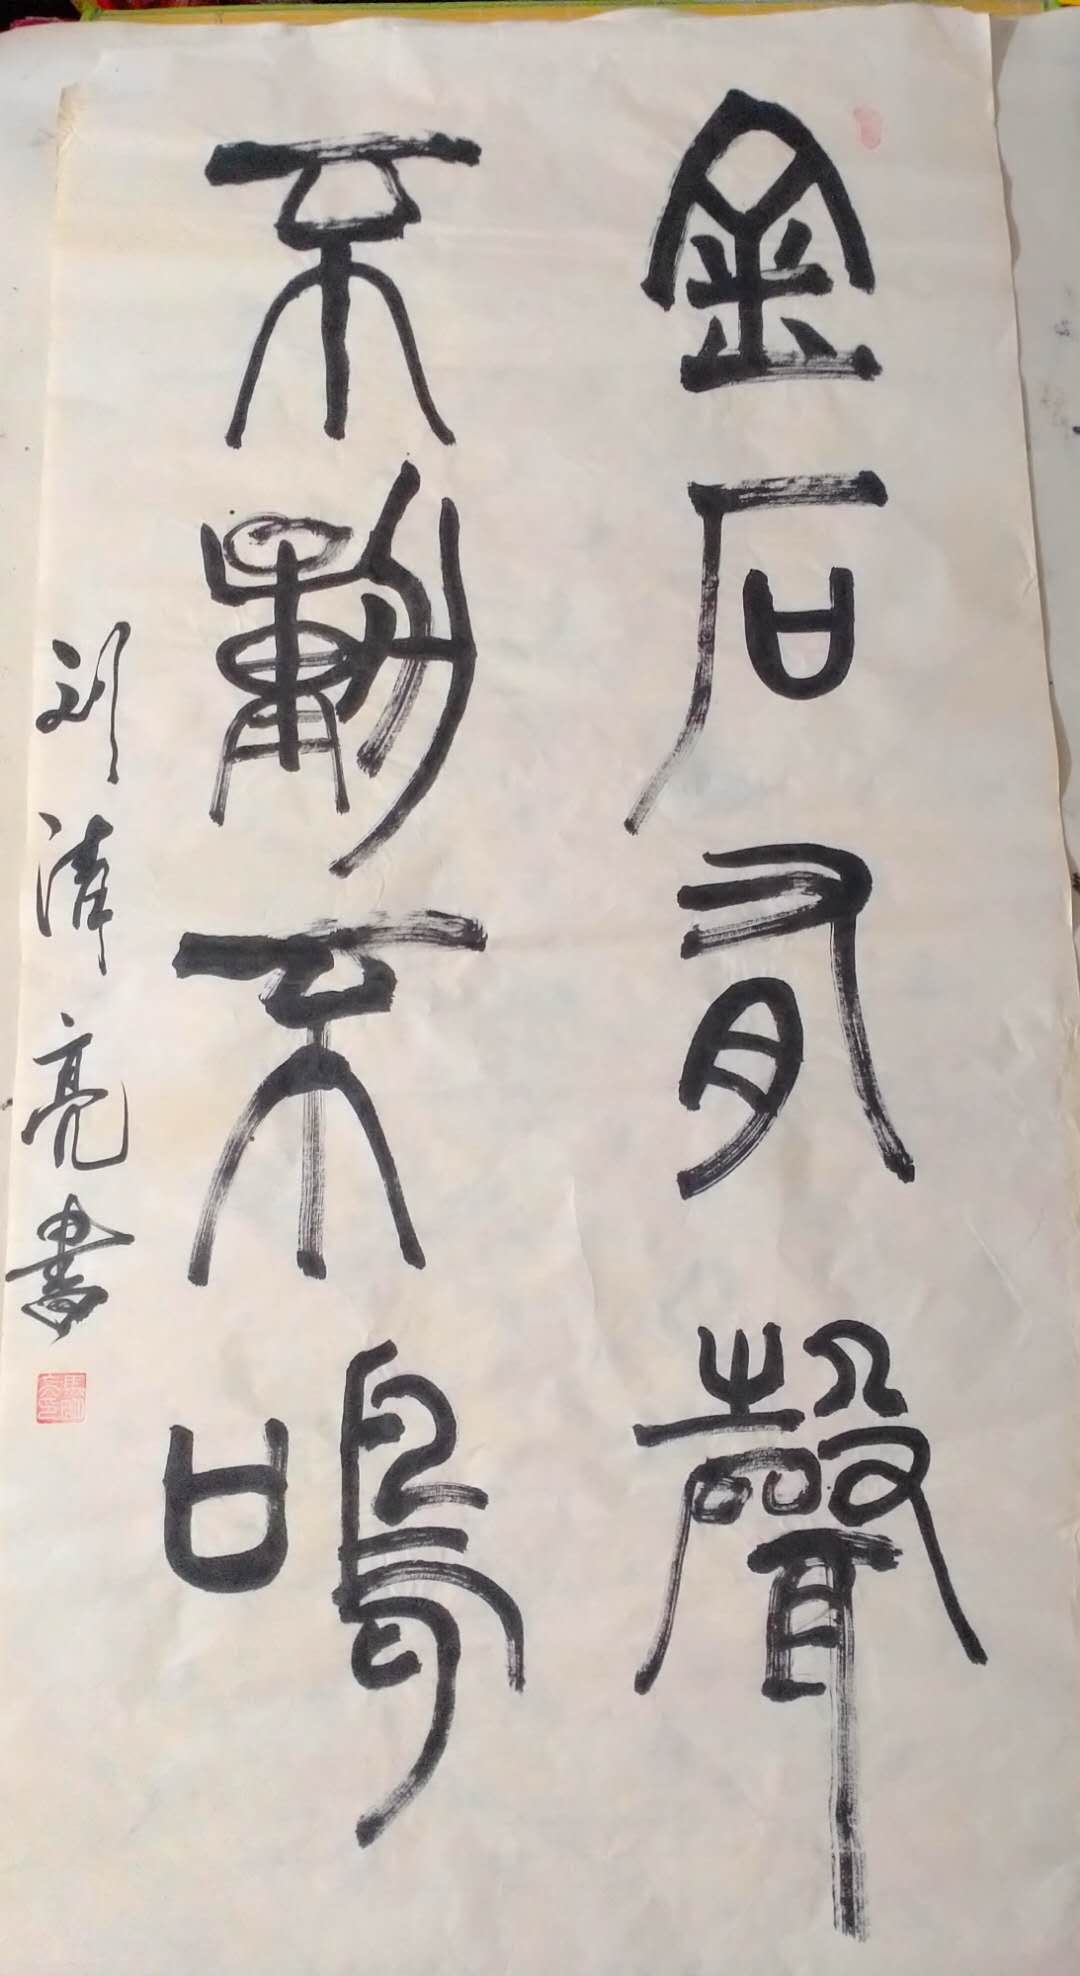 金石有聲
不動不鳴
刘清亮書